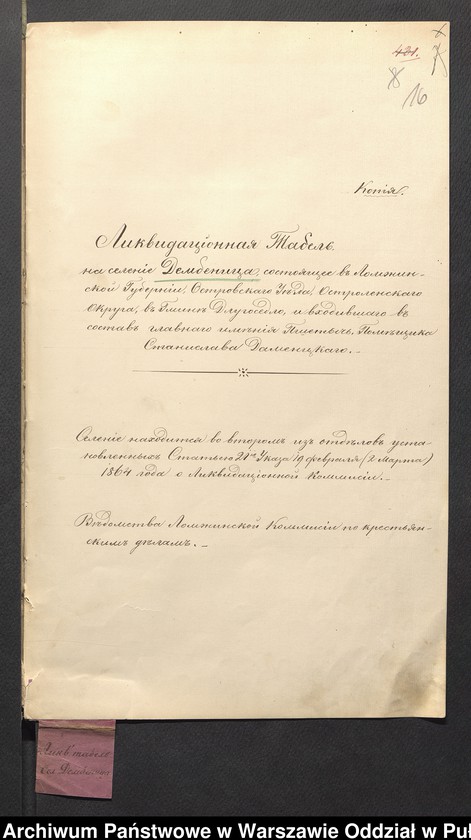 421.
8
16
Копія.
Ликвидаціонная Табель
на селеніе Дембеница, состоящее въ Ломжин-
ской Губерніи, Островскаго Уѣзда, Остроленскаго
Округа, въ Гминѣ Длугоседло, и входившаго въ
составъ главнаго имѣнія Помѣщика
Станислава
Селеніе находится во второмъ изъ отдѣловъ уста-
новленныхъ Статьею 21ю Указа 19 февраля (2 Марта)
1864 года о Ликвидаціонной Коммисіи.
Вѣдомства Ломжинской Коммисіи по крестьян-
скимъ дѣламъ.
Ликв. табель
сел. Дембеница
Archiwum Państwowe w Warszawie Oddział w Puł